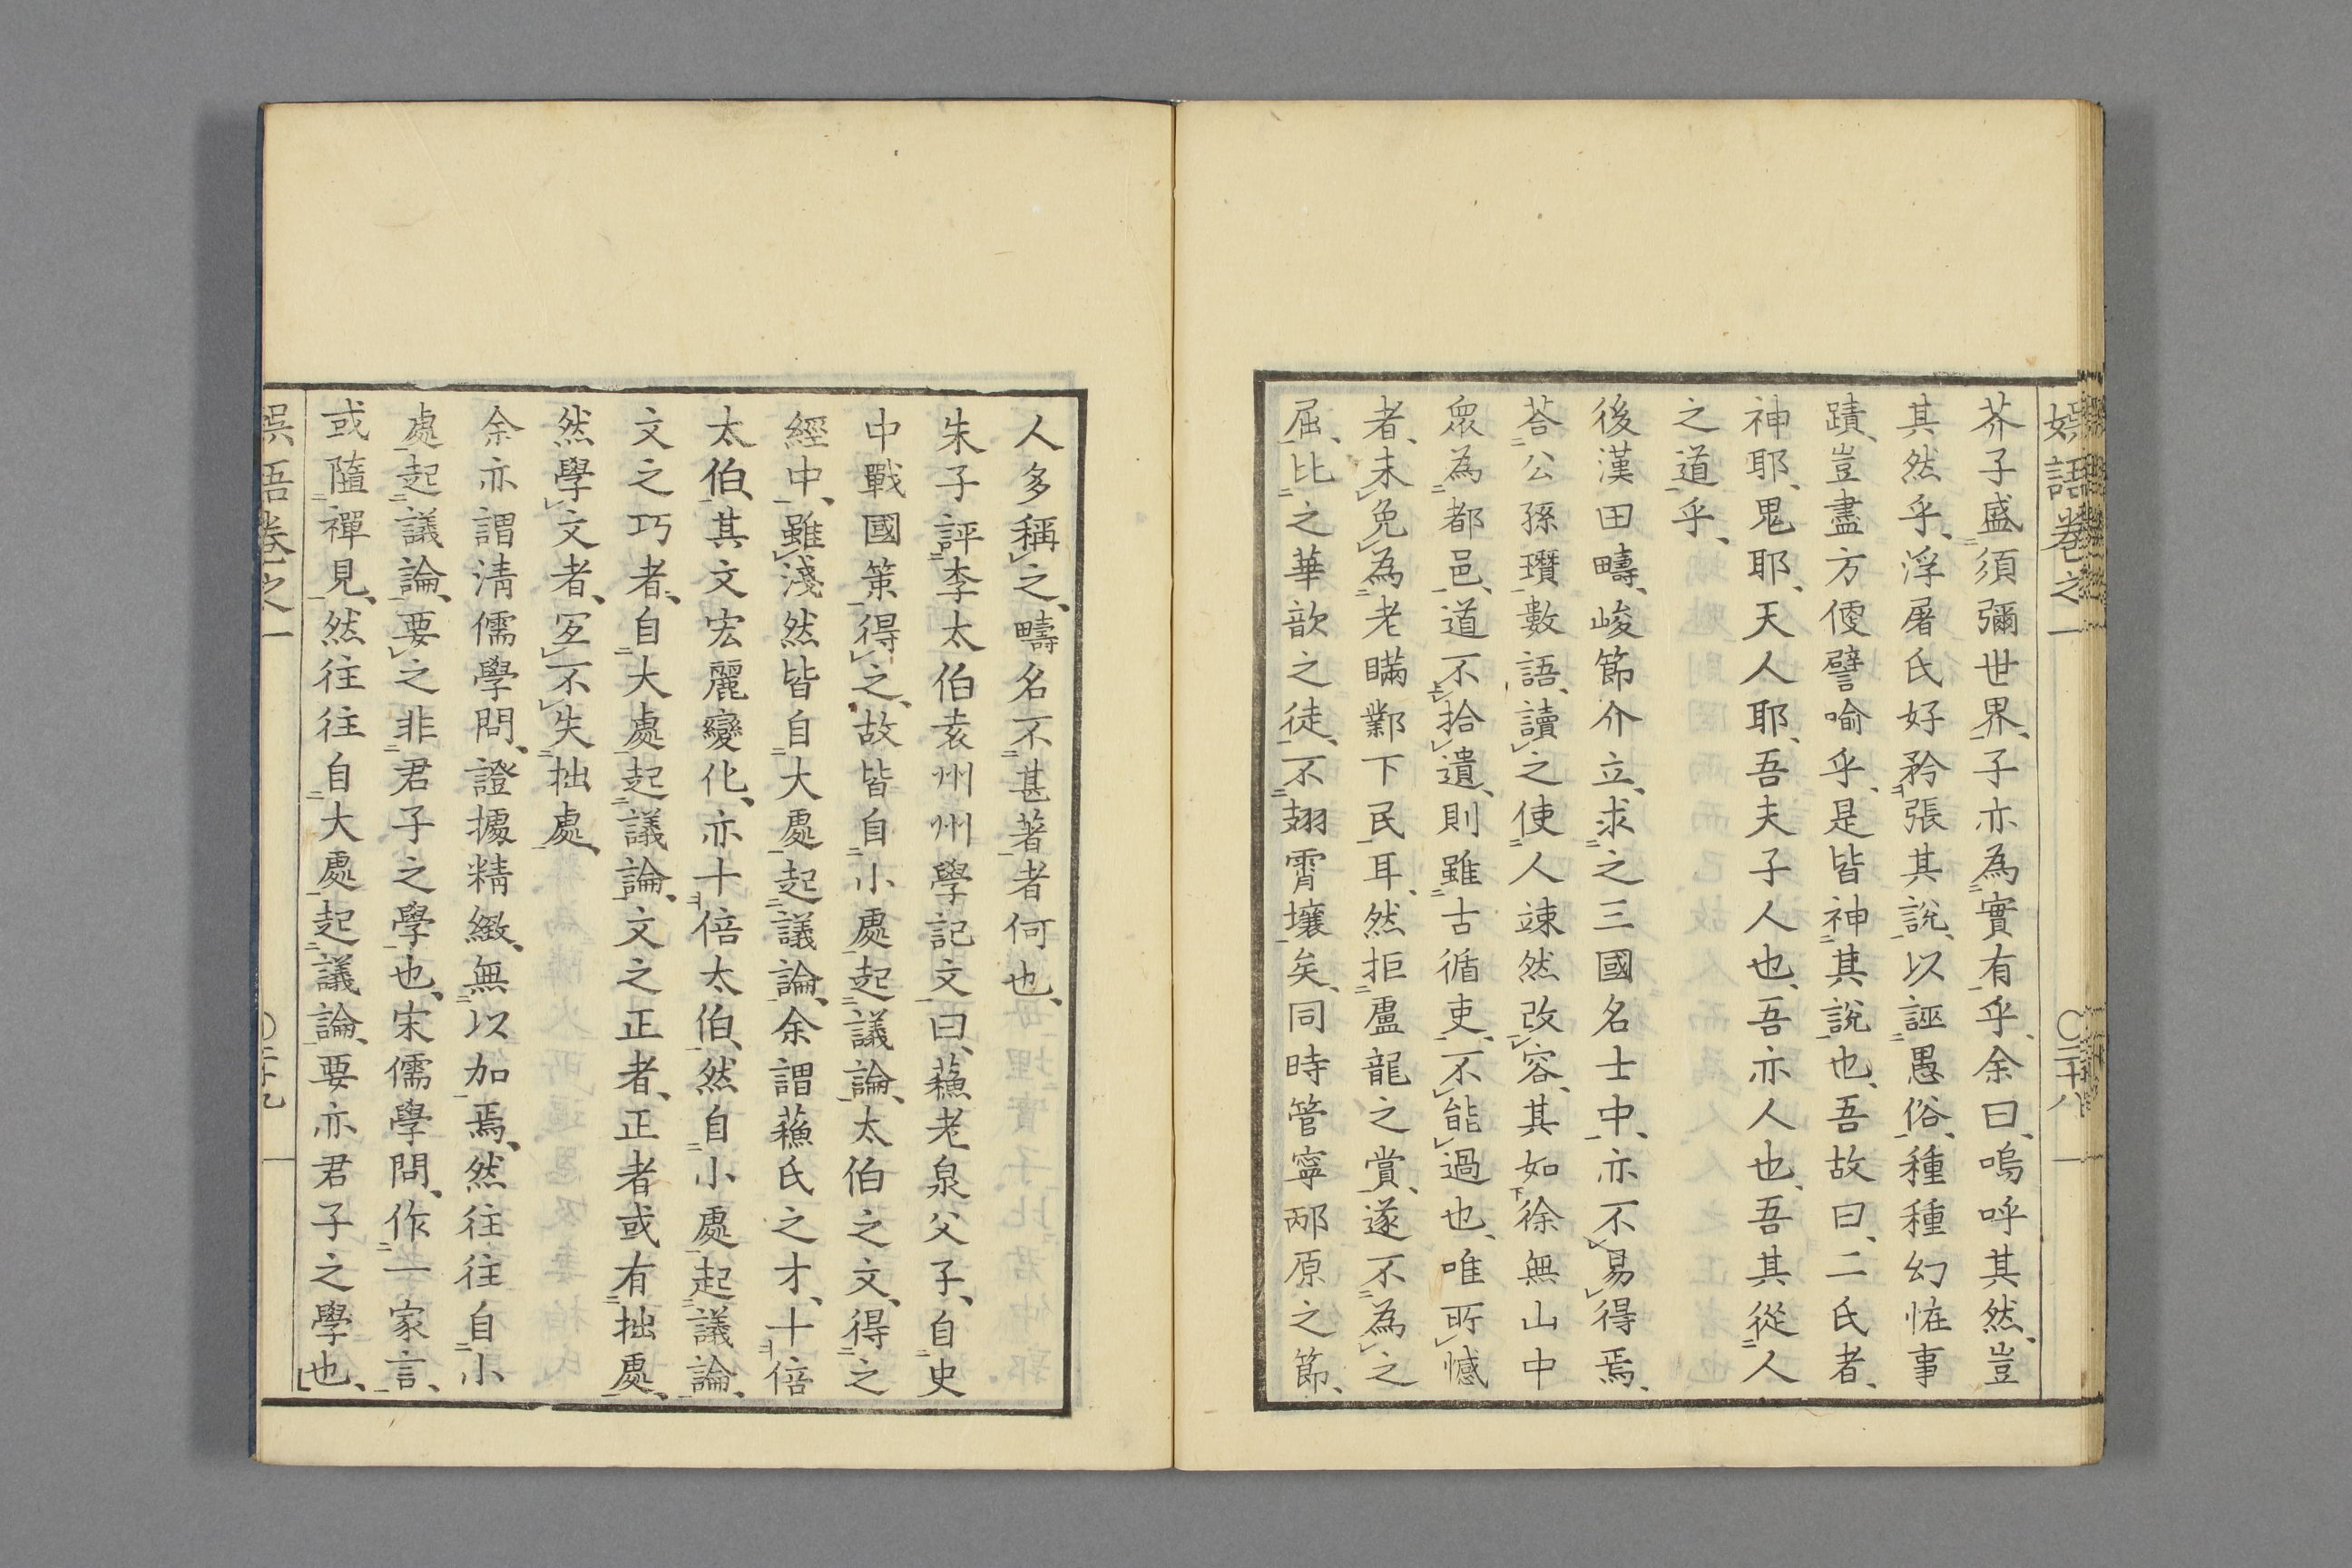 娯語卷之一 〇二十八
芥子盛須彌世界、子亦為實有乎、余曰、嗚呼其然、豈
其然乎、浮屠氏好矜張其說、以誣愚俗、種種幻怪事
蹟、豈盡方便譬喻乎、是皆神其說也、吾故曰、二氏者、
神耶、鬼耶、天人耶、吾夫子人也、吾亦人也、吾其從人
之道乎、
後漢田疇、峻節介立、求之三國名士中、亦不易得焉、
荅公孫瓚數語、讀之使人竦然改容、其如徐無山中
眾為都邑、道不拾遺、則雖古循吏、不能過也、唯所憾
者、未免為老瞞鄴下民耳、然拒盧龍之賞、遂不為之
屈、比之華歆之徒、不翅霄壤矣、同時管寧邴原之節、
人多稱之、疇名不甚著者何也、
朱子評李太伯袁州州學記文曰、蘓老泉父子、自史
中戰國策得之、故皆自小處起議論、太伯之文、得之
經中、雖淺然皆自大處起議論、余謂蘓氏之才、十倍
太伯、其文宏麗變化、亦十倍太伯、然自小處起議論、
文之巧者、自大處起議論、文之正者、正者或有拙處、
然學文者、寧不失拙處、
余亦謂清儒學問、證據精緻、無以加焉、然往往自小
處起議論、要之非君子之學也、宋儒學問、作一家言、
或隨禪見、然往往自大處起議論、要亦君子之學也、
娯語卷之一 〇二十九